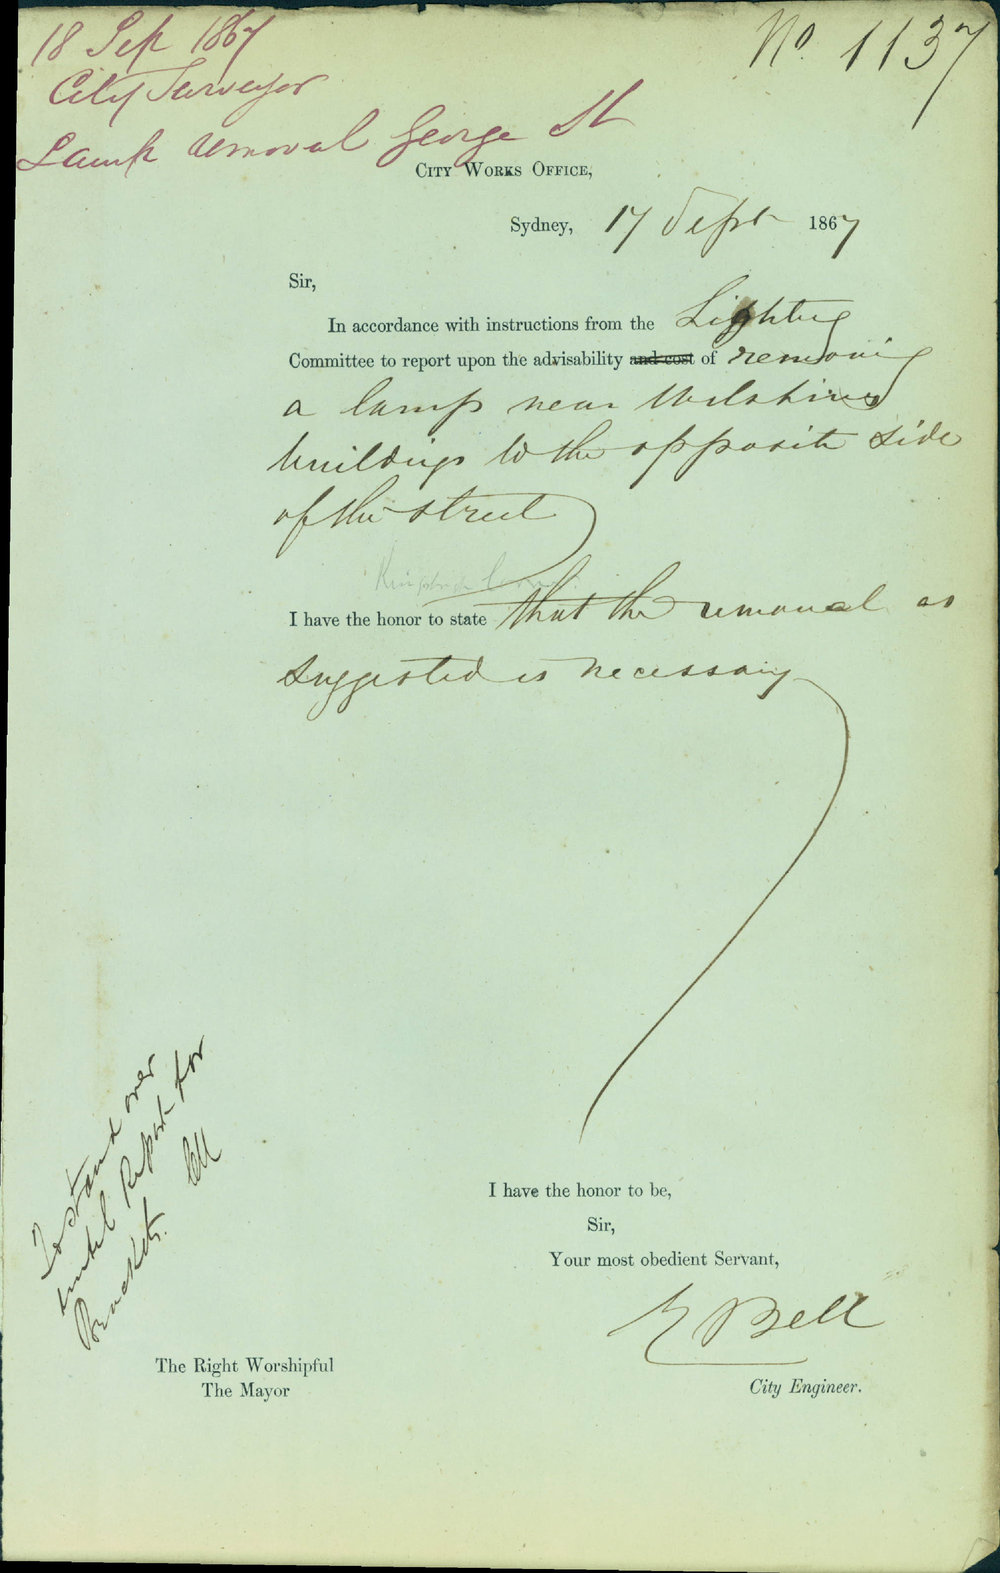 18 Sep 1867
City Surveyor
Lamp removal George St
No. 1137
CITY WORKS OFFICE,
Sydney, 17 Sept 1867
Sir,
In accordance with instructions from the Lighting
Committee to report upon the advisability and cost of removing
a lamp near Wilshires
buildings to the opposite side
of the street
I have the honor to state that the removal as
suggested is necessary
I have the honor to be,
Sir,
Your most obedient Servant,
E Bell
City Engineer.
To stand over
until Report for
Brackets.
The Right Worshipful
The Mayor